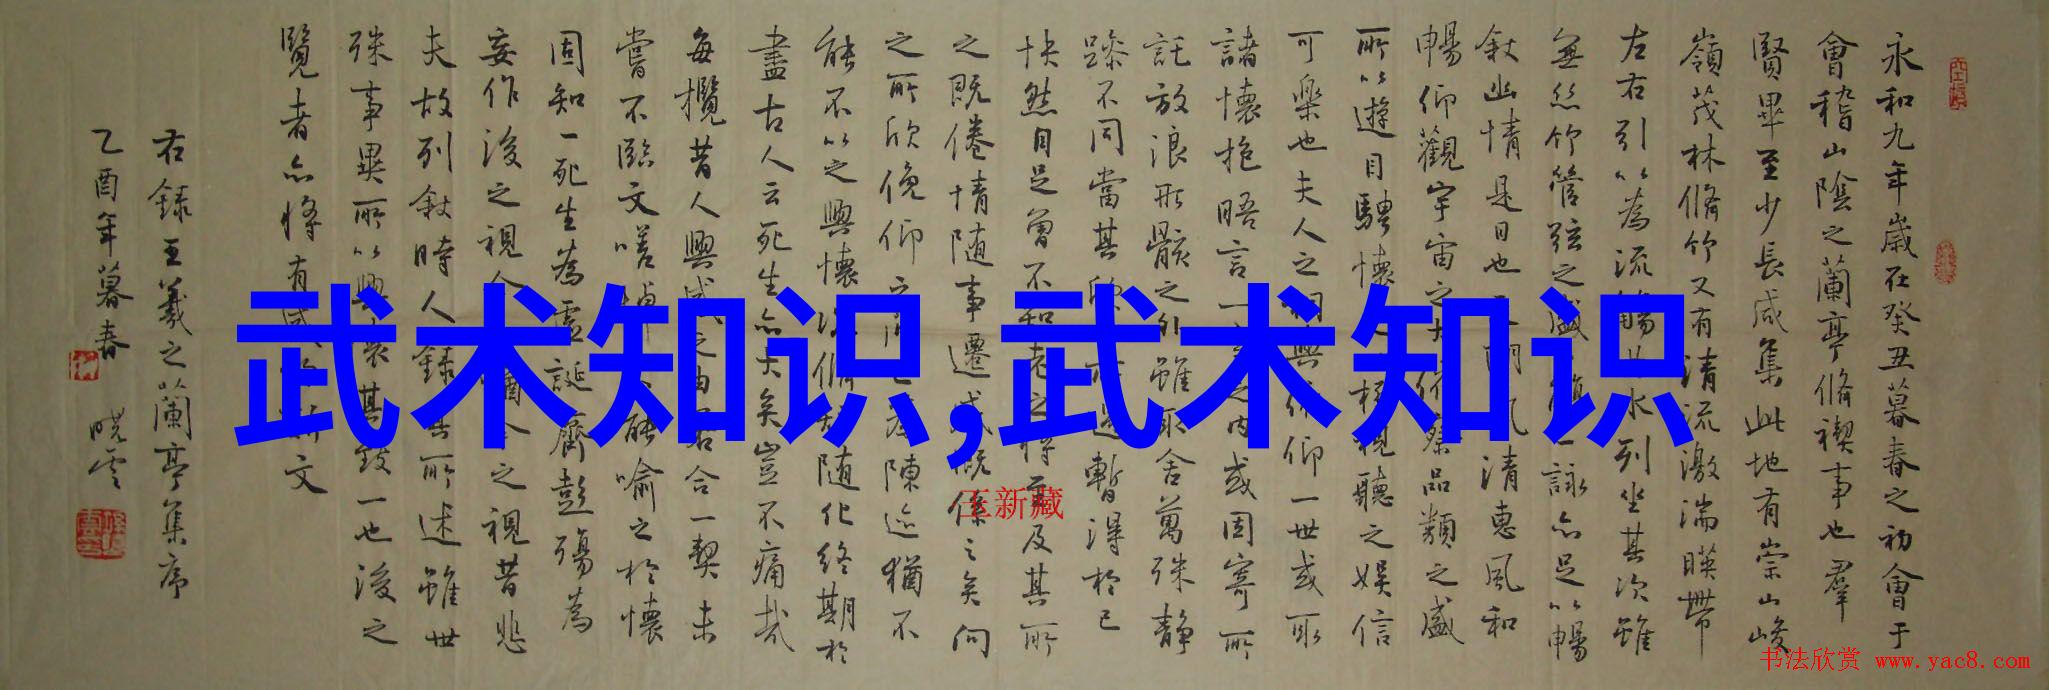 永和九年歲在癸丑暮春之初會于
會稽山陰之蘭亭脩禊事也羣
賢畢至少長咸集此地有崇山峻
嶺茂林脩竹又有清流激湍暎帶
左右引以為流觴水列坐其次雖
無絲竹管弦之盛一詠亦足以暢
敘幽情是日也清惠風和
暢仰觀宇宙之大俯察品類之盛
所以遊目騁懷極視聽之娛信
可樂也夫人之相與俯仰一世或取
諸懷抱晤言一之內或因寄所
託放浪形骸之外雖取舍萬殊静
躁不同當其欣遇暫得於己
怏然自足曾不知老之將至及其所
之既倦情随事遷感慨係之矣向
之所欣俛仰之為陳迹猶不
能不以之興懷況脩短随化終期於
盡古人云死生亦大矣豈不痛哉
每攬昔人興感之由若合一契未
嘗不臨文嗟悼能喻之於懷
固知一死生為虛誕齊彭殤為
妄作後之視今今之視昔悲
夫故列敘時人錄其所述雖世
殊事異所以興懷其致一也後之
覽者亦將有感斯文
右録王羲之蘭亭集序
乙酉年暮春 晓雲
武术知识,武术知识
王新藏
书法欣赏 www.yac8.com